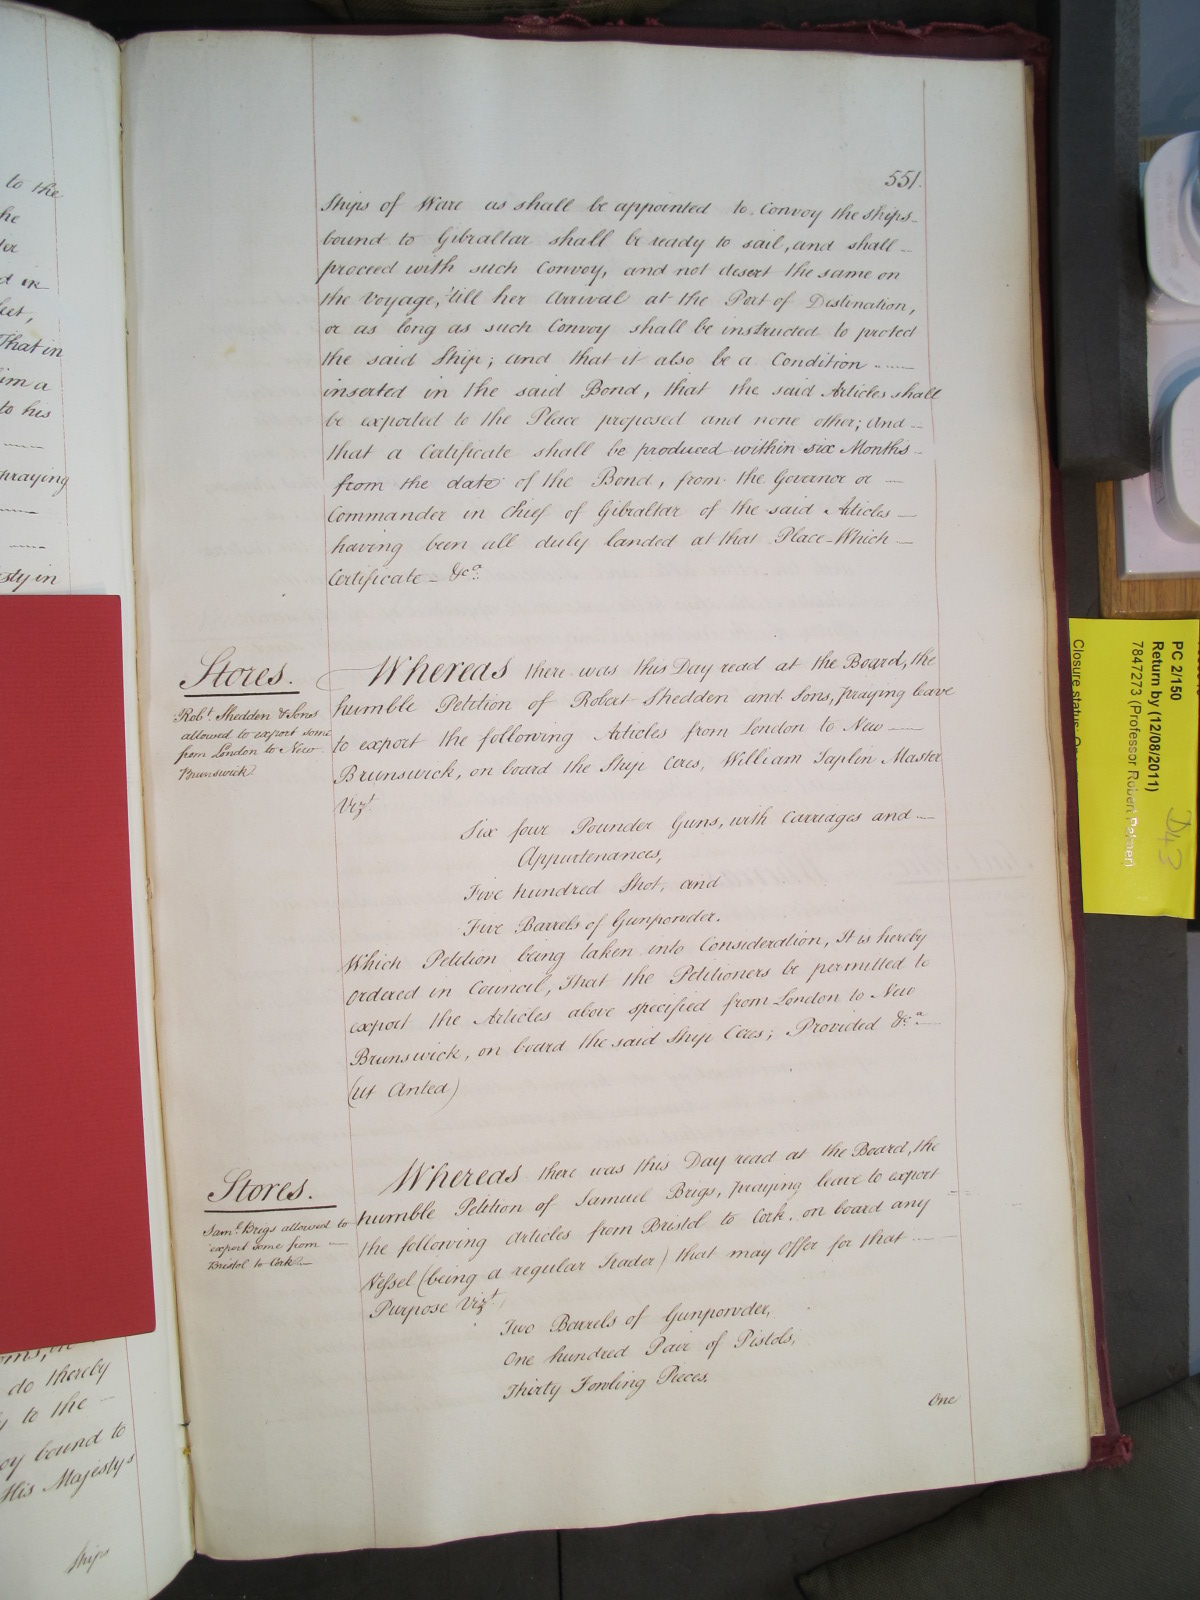 to the
he
d in
That in
im a
to his
praying
sty in
do thereby
to the
oy bound to
His Majestys
Ships
551.
Ships of Warr as shall be appointed to Convoy the Ships
bound to Gibraltar shall be ready to sail, and shall
proceed with such Convoy, and not desert the same on
the Voyage, 'till her Arrival at the Port of Destination,
or as long as such Convoy shall be instructed to protect
the said Ship; and that it also be a Condition
inserted in the said Bond, that the said Articles shall
be exported to the Place proposed and none other; And
that a Certificate shall be produced within six Months
from the date of the Bond, from the Governor or
Commander in Chief of Gibraltar of the said Articles
having been all duly landed at that Place - Which
Certificate - &ca.
Stores.
Robt. Shedden & Sons
allowed to export some
from London to New
Brunswick.
Whereas there was this Day read at the Board, the
humble Petition of Robert Shedden and Sons, praying leave
to export the following Articles from London to New
Brunswick, on board the Ship Ceres, William Taplin Master
Vizt.
Six four Pounder Guns, with Carriages and
Appurtenances,
Five hundred Shot, and
Five Barrels of Gunpowder.
Which Petition being taken into Consideration, It is hereby
Ordered in Council, That the Petitioners be permitted to
export the Articles above specified from London to New
Brunswick, on board the said Ship Ceres; Provided &ca.
(ut Antea)
Stores.
Saml. Brigs allowed to
export some from
Bristol to Cork.
Whereas there was this Day read at the Board, the
humble Petition of Samuel Brigs, praying leave to export
the following Articles from Bristol to Cork, on board any
Vessel (being a regular Trader) that may Offer for that
Purpose Vizt.
Two Barrels of Gunpowder,
One hundred Pair of Pistols,
Thirty Fowling Pieces.
One
PC 2/150
Return by (12/08/2011)
7847273 (Professor Robert Palmer)
Closure status: O
D43